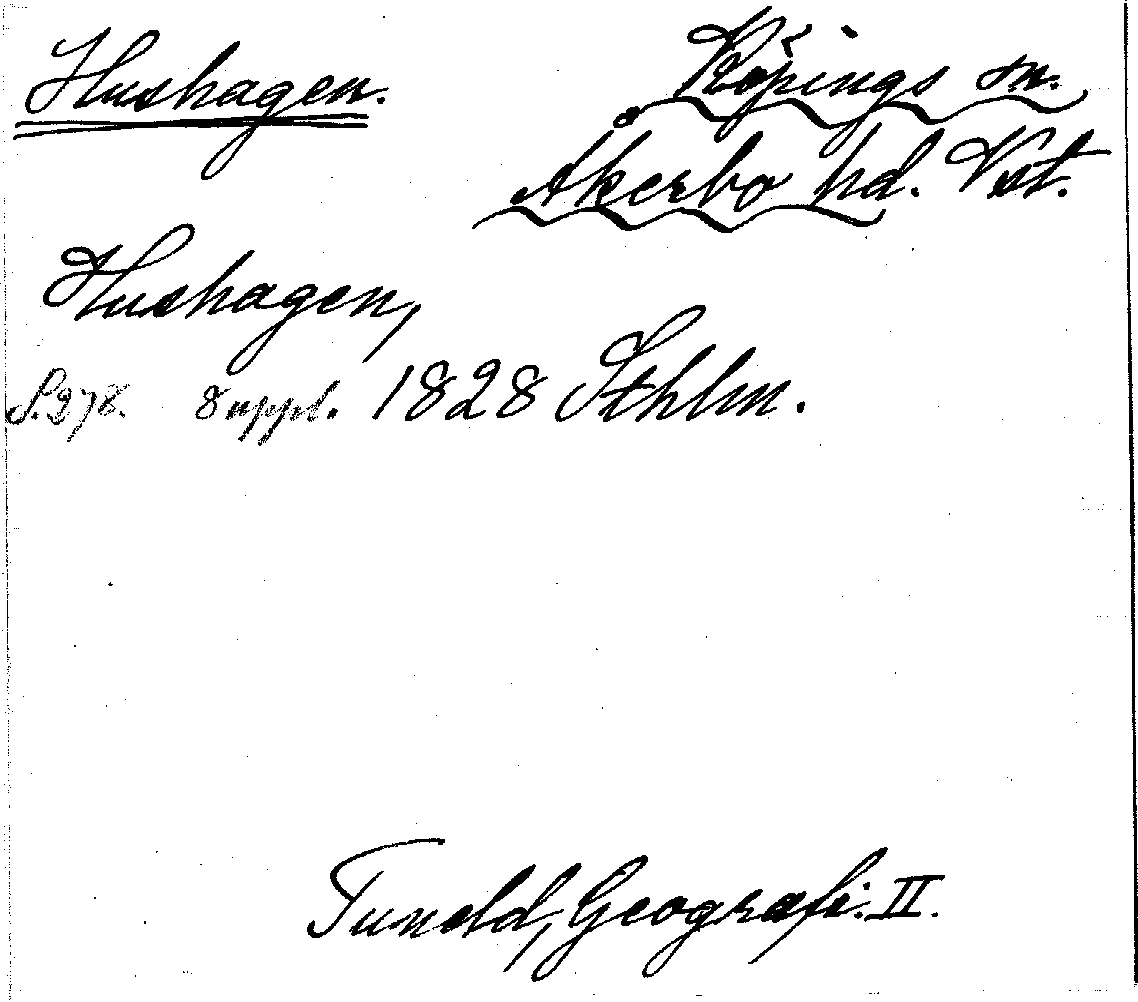 Hushagen.
Köpings sn.
Åkerbo hd. Vst.
Hushagen,
S. 278. 8 uppl. 1828 Sthlm.
Tuneld, Geografi. II.